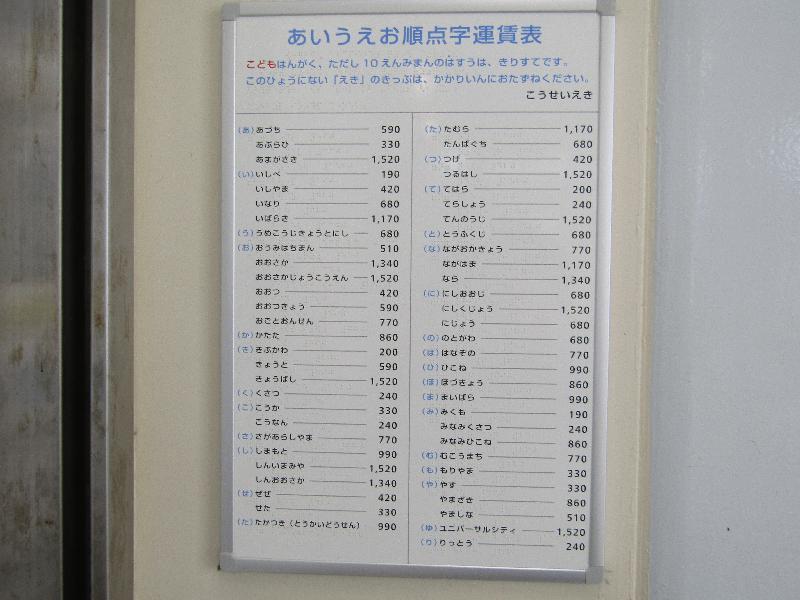 あいうえお順点字運賃表
こどもはんがく、ただし10えんみまんのはすうは、きりすてです。
このひょうにない「えき」のきっぷは、かかりいんにおたずねください。
こうせいえき
(あ)あづち 590
あぶらひ 330
あまがさき 1,520
(い)いしべ 190
いしやま 420
いなり 680
いばらき 1,170
(う)うめこうじきょうとにし 680
(お)おうみはちまん 510
おおさか 1,340
おおさかじょうこうえん 1,520
おおつ 420
おおつきょう 590
おごとおんせん 770
(か)かたた 860
(き)きぶかわ 200
きょうと 590
きょうばし 1,520
(く)くさつ 240
(こ)こうか 330
こうなん 240
(さ)さがあらしやま 770
(し)しまもと 990
しんいまみや 1,520
しんおおさか 1,340
(せ)ぜぜ 420
せた 330
(た)たかつき(とうかいどうせん) 990
(た)たむら 1,170
たんばぐち 680
(つ)つげ 420
つるはし 1,520
(て)てはら 200
てらしょう 240
てんのうじ 1,520
(と)とうふくじ 680
(な)ながおかきょう 770
ながはま 1,170
なら 1,340
(に)にしおおじ 680
にしくじょう 1,520
にじょう 680
(の)のとがわ 680
(は)はなぞの 770
(ひ)ひこね 990
(ほ)ほづきょう 860
(ま)まいばら 990
(み)みくも 190
みなみくさつ 240
みなみひこね 860
(む)むこうまち 770
(も)もりやま 330
(や)やす 330
やまざき 860
やましな 510
(ゆ)ユニバーサルシティ 1,520
(り)りっとう 240